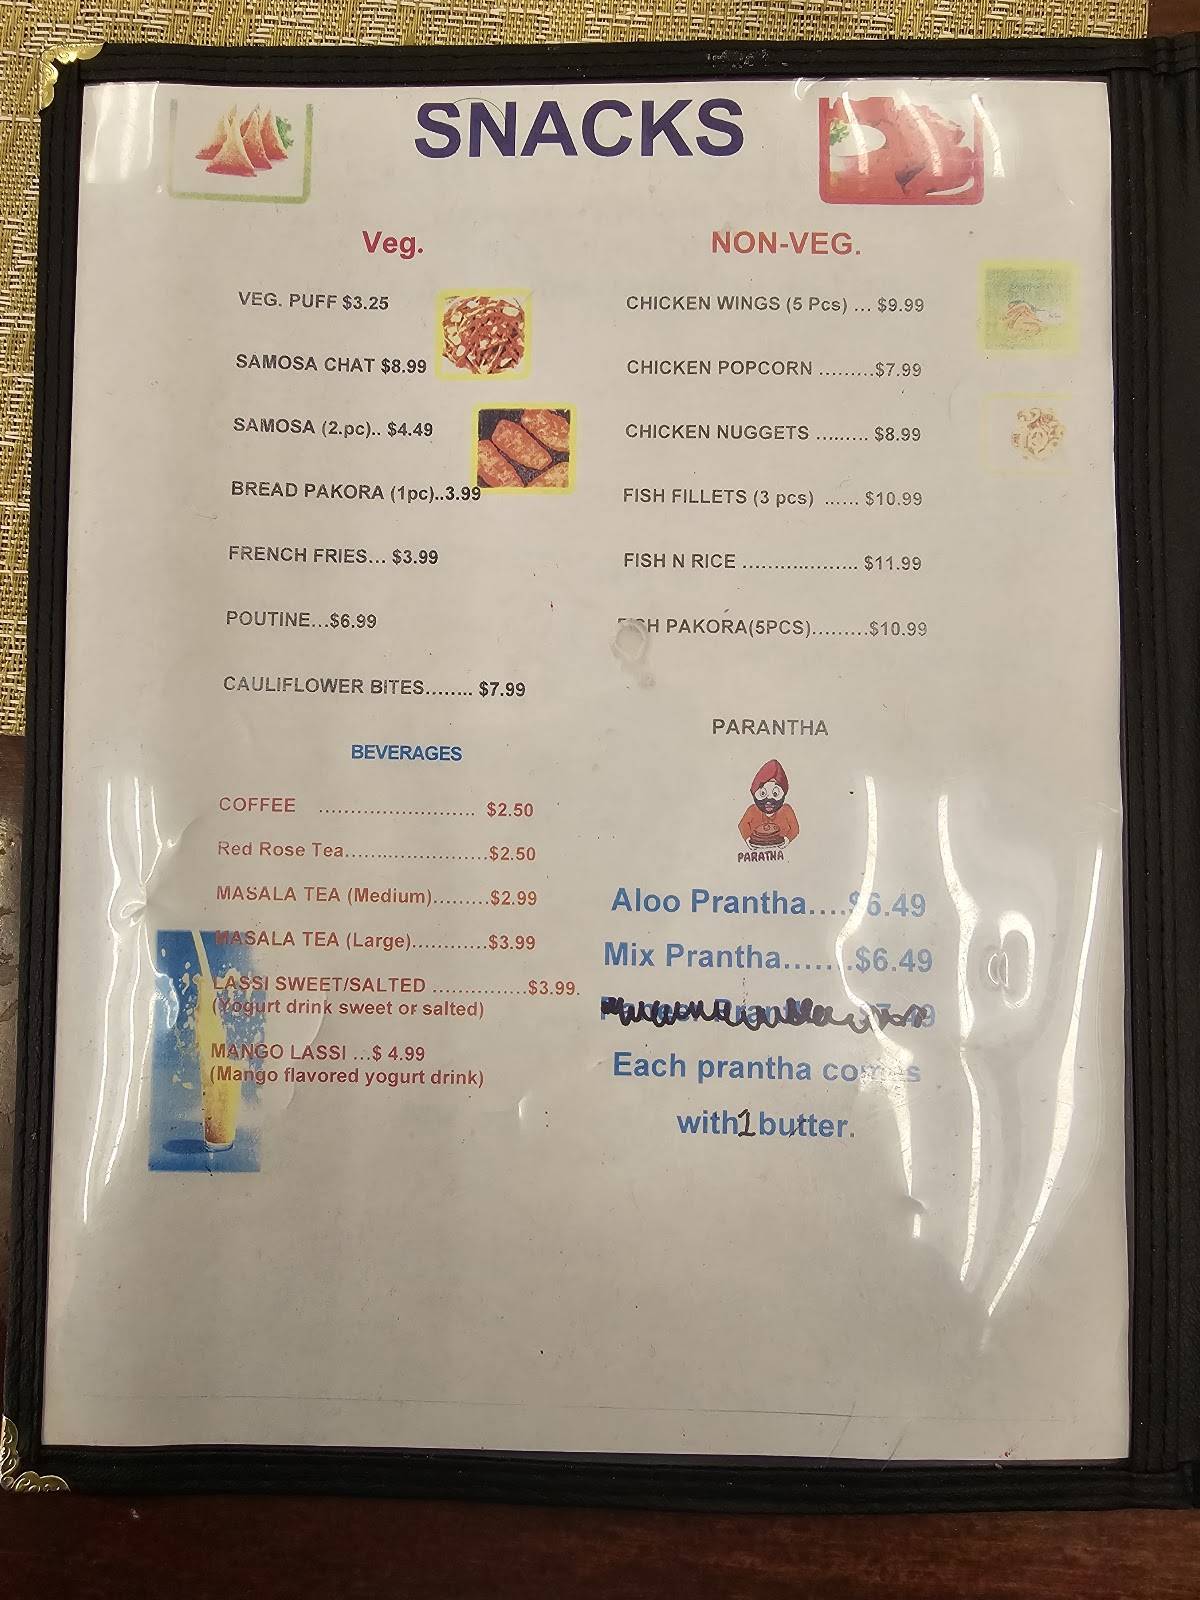 SNACKS
Veg.
VEG. PUFF $3.25
SAMOSA CHAT $8.99
SAMOSA (2.pc).. $4.49
BREAD PAKORA (1pc)..3.99
FRENCH FRIES... $3.99
POUTINE...$6.99
CAULIFLOWER BITES........ $7.99
BEVERAGES
COFFEE .......................... $2.50
Red Rose Tea........................$2.50
MASALA TEA (Medium).........$2.99
MASALA TEA (Large)............$3.99
LASSI SWEET/SALTED ...............$3.99.
(Yogurt drink sweet or salted)
MANGO LASSI ...$ 4.99
(Mango flavored yogurt drink)
NON-VEG.
CHICKEN WINGS (5 Pcs) ... $9.99
CHICKEN POPCORN .........$7.99
CHICKEN NUGGETS ......... $8.99
FISH FILLETS (3 pcs) ...... $10.99
FISH N RICE .................... $11.99
FISH PAKORA(5PCS).........$10.99
PARANTHA
PARATHA
Aloo Prantha....$6.49
Mix Prantha.......$6.49
Each prantha comes
with 1 butter.